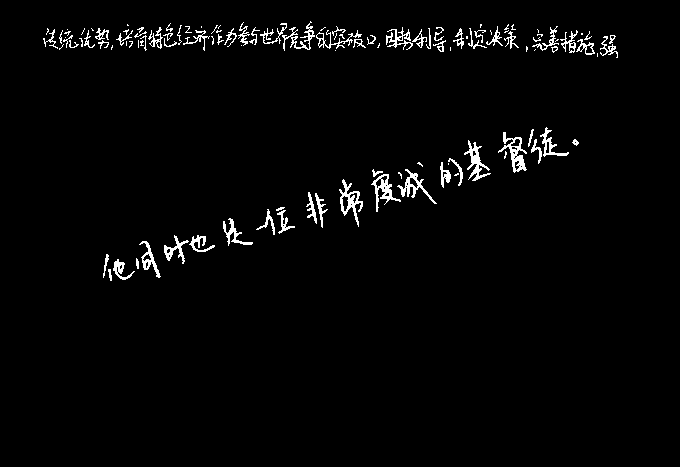 传统优势,培育特色经济作为参与世界竞争的突破口,因势利导,制定决策,完善措施,强
他同时也是一位非常虔诚的基督徒。